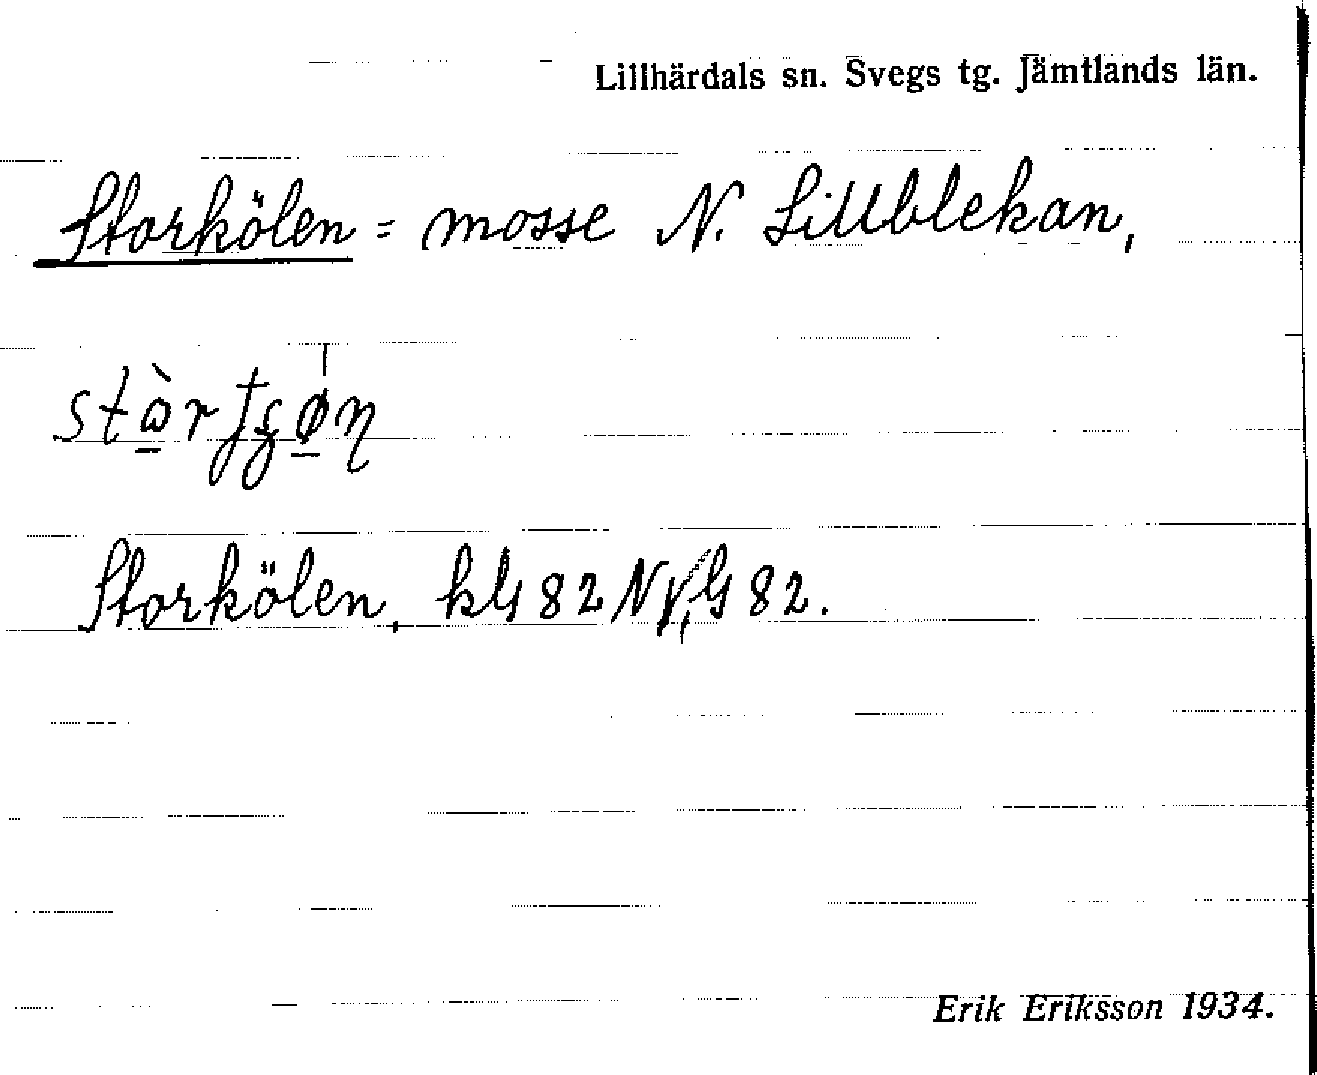 Lillhärdals sn. Svegs tg. Jämtlands län.
Storkölen = mosse N. Lillblekan,
Storkölen, kG 82 NV, G 82.
Erik Eriksson 1934.